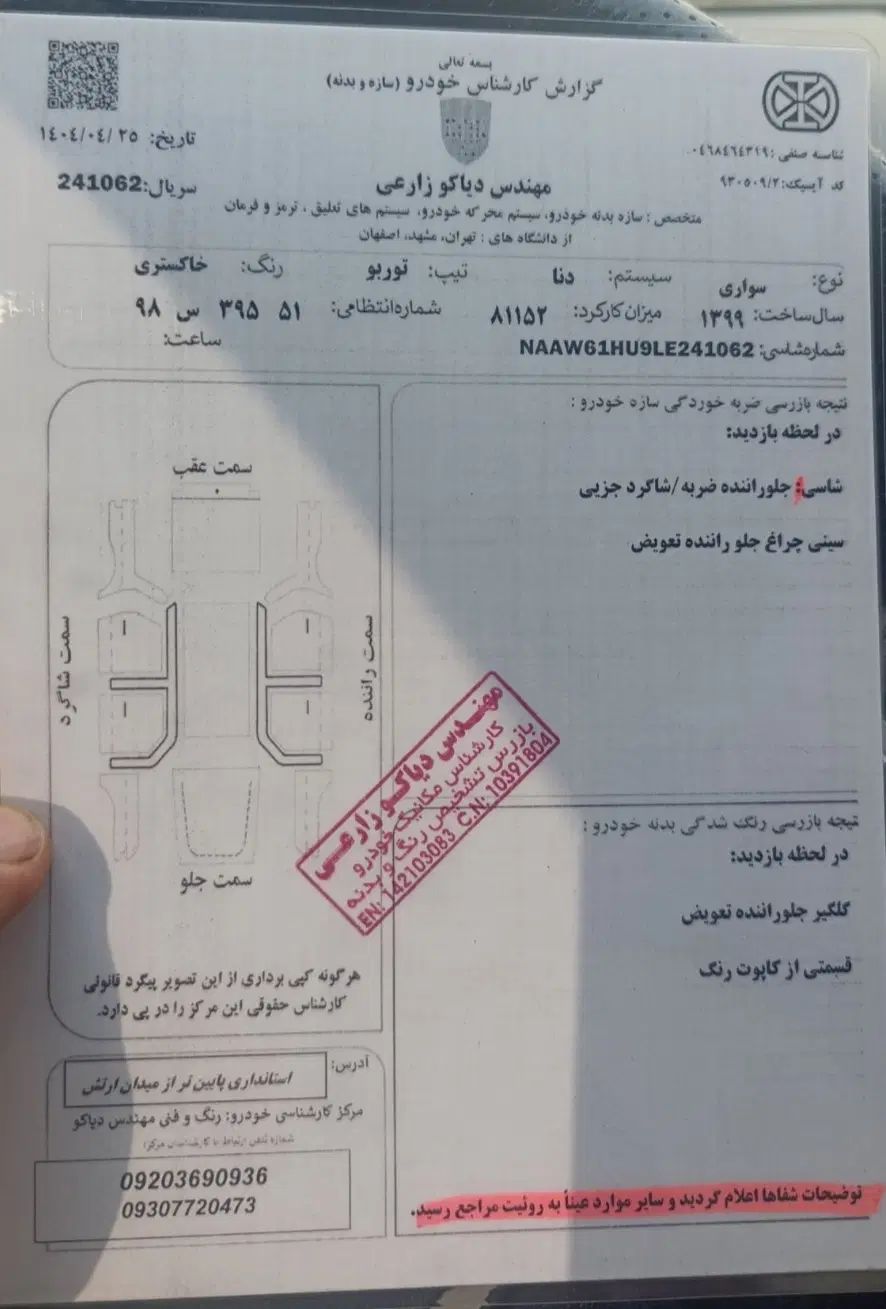 بسمه تعالی
گزارش کارشناس خودرو (سازه و بدنه)
تاریخ: ۱۴۰٤/۰٤/۲۵
شناسه صنفی: ۰٤٦٨٤٦٤٣١٩
سریال: 241062
مهندس دیاکو زارعی
کد آیسیک: ۹۳۰۵۰۹/۲
متخصص: سازه بدنه خودرو، سیستم محرکه خودرو، سیستم های تعلیق، ترمز و فرمان
از دانشگاه های: تهران، مشهد، اصفهان
نوع: سواری سیستم: دنا تیپ: توربو رنگ: خاکستری
سال ساخت: ۱۳۹۹ میزان کارکرد: ۸۱۱۵۲ شماره انتظامی: ۵۱ ۳۹۵ س ۹۸
شماره شاسی: NAAW61HU9LE241062 ساعت:
نتیجه بازرسی ضربه خوردگی سازه خودرو:
در لحظه بازدید:
شاسی: جلو راننده ضربه/شاگرد جزیی
سینی چراغ جلو راننده تعویض
سمت عقب
سمت شاگرد
سمت راننده
سمت جلو
مهندس دیاکو زارعی
کارشناس مکانیک خودرو
بازرس تشخیص رنگ و بدنه
EN: 142103083 C.N: 10391804
نتیجه بازرسی رنگ شدگی بدنه خودرو:
در لحظه بازدید:
گلگیر جلو راننده تعویض
قسمتی از کاپوت رنگ
هرگونه کپی برداری از این تصویر پیگرد قانونی
کارشناس حقوقی این مرکز را در پی دارد.
آدرس:
استانداری پایین تر از میدان ارتش
مرکز کارشناسی خودرو: رنگ و فنی مهندس دیاکو
شماره تلفن ارتباط با کارشناسان مرکز:
09203690936
09307720473
توضیحات شفاها اعلام گردید و سایر موارد عیناً به روئیت مراجع رسید.